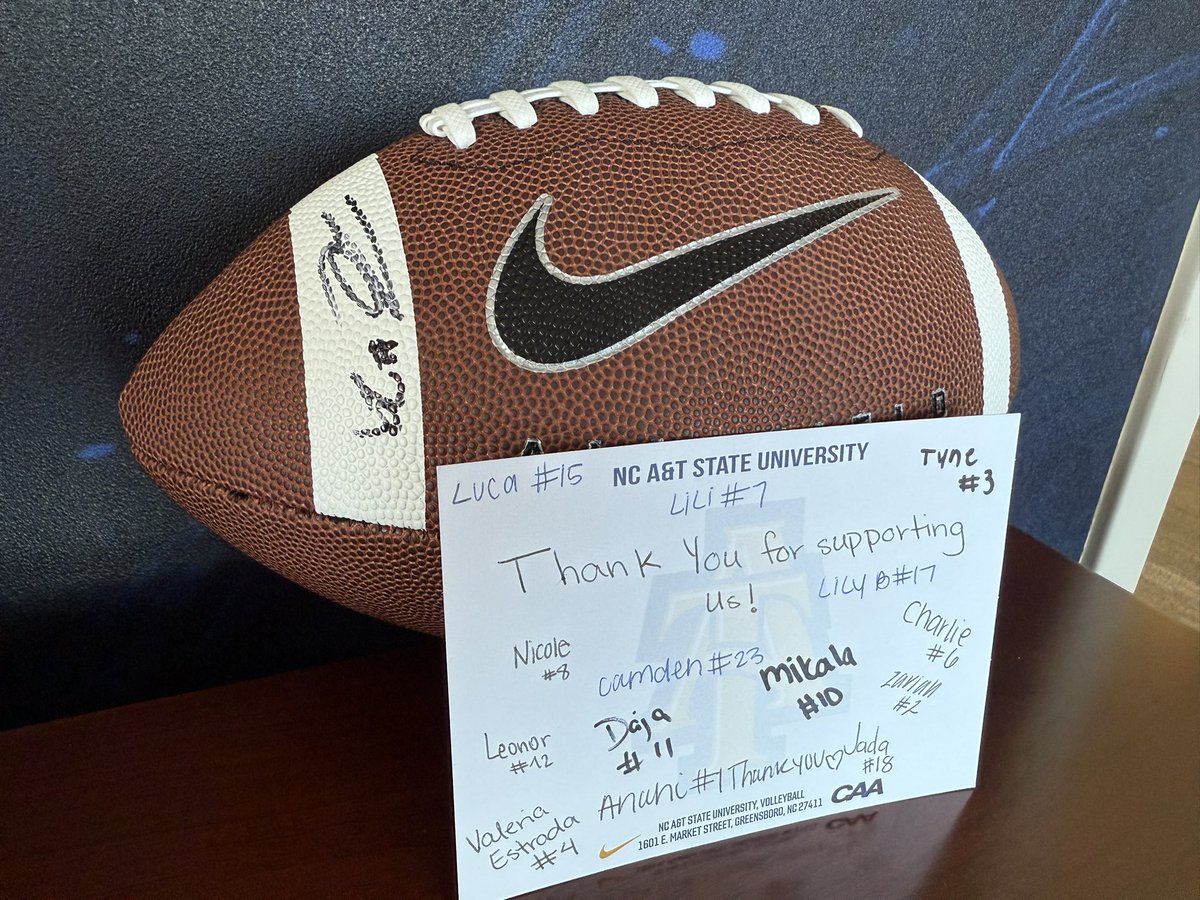 NC A&T STATE UNIVERSITY
Luca #15
Lili #7
Tyne
#3
Thank You for supporting
us!
Lily B #17
Charlie
#6
Nicole
#8
Camden #23
Mikala
#10
Zariah
#2
Leonor
#12
Daja
#11
Jada
#18
Anahi #1 Thank you ♡
Valeria
Estrada
#4
CAA
NC A&T STATE UNIVERSITY, VOLLEYBALL
1601 E. MARKET STREET, GREENSBORO, NC 27411